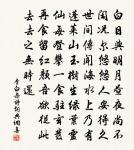 白日與明月晝夜尚不
閑况爾悠悠人安得久
世間傳聞海水上乃有
蓬萊山玉樹生綠葉靈
仙每登攀一食駐玄髮
再食留紅顏吾欲從此
去去之無時還
李白雜詩